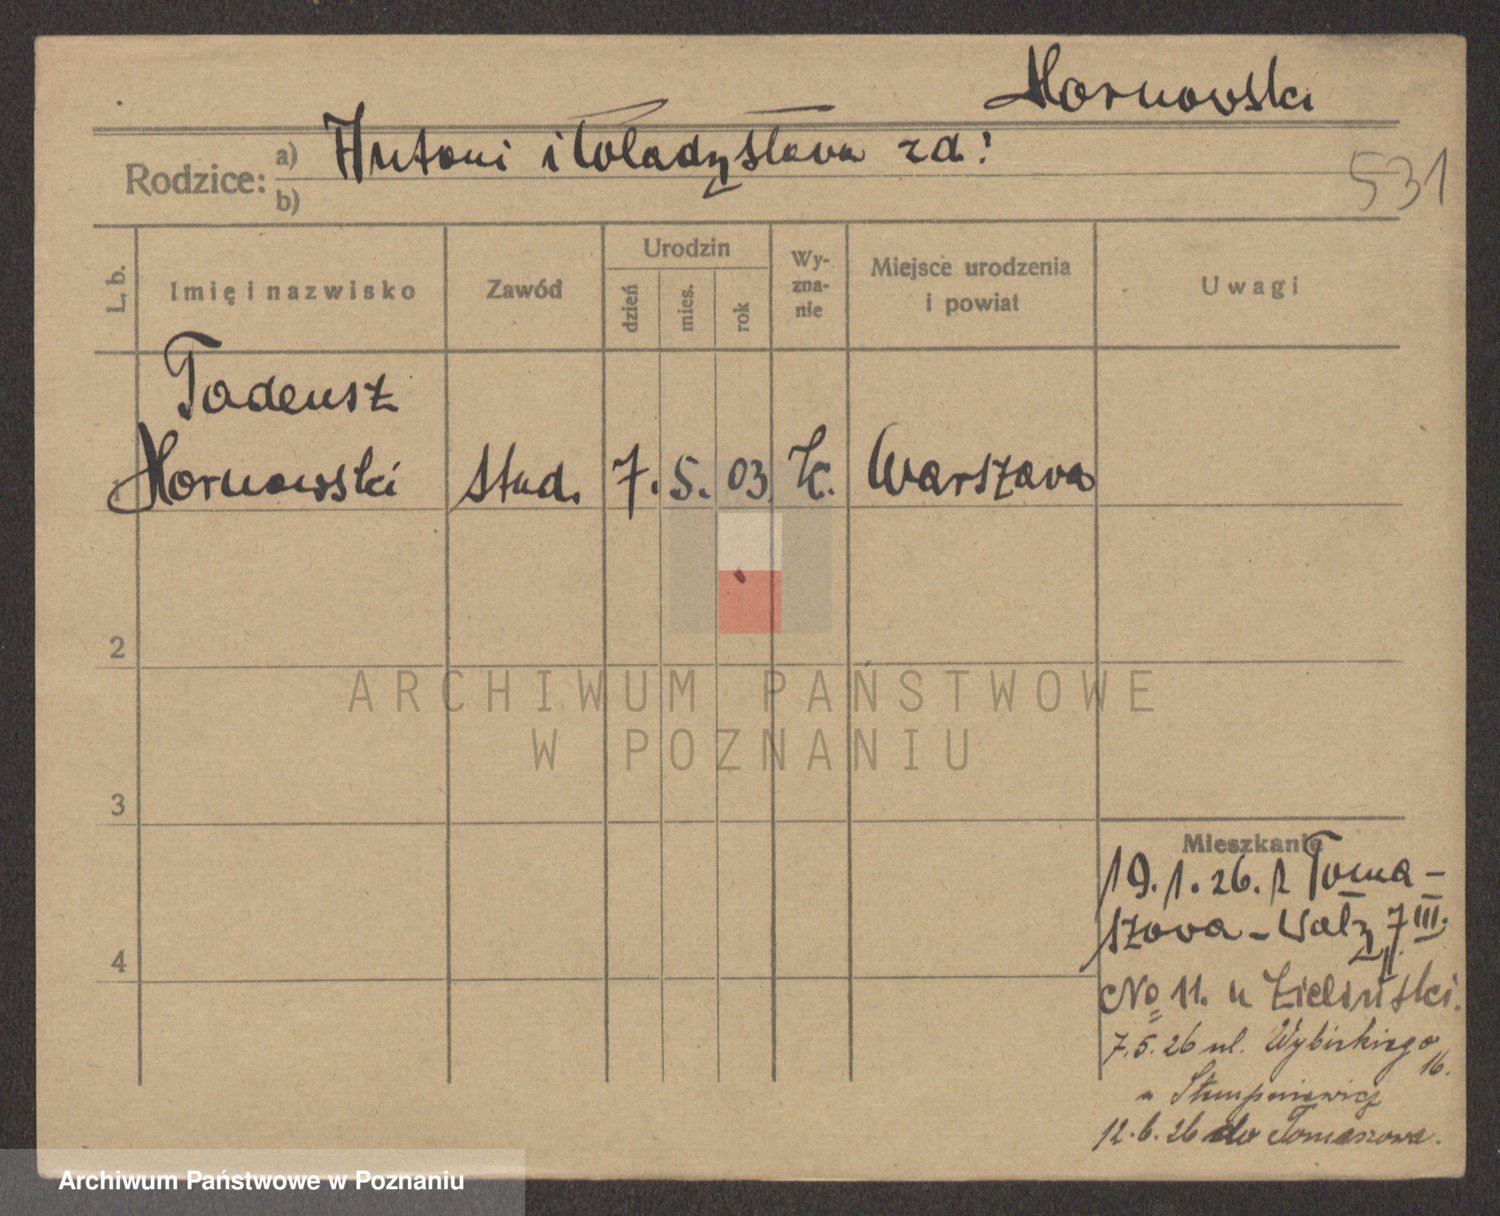 Hornowski
Rodzice: a) Antoni i Władysława zd:
b)
531
L. b.
Imię i nazwisko
Zawód
Urodzin
dzień
mies.
rok
Wy-
zna-
nie
Miejsce urodzenia
i powiat
Uwagi
Tadeusz
Hornowski stud. 7. 5. 03 k. Warszawa
2
ARCHIWUM PAŃSTWOWE
W POZNANIU
3
Mieszkanie
19.1.26. z Toma-
szowa - Wały 7 III.
4
No 11. u Zieliński.
7.5.26 ul. Wybickiego
16.
u
12.6.26 do Tomaszowa.
Archiwum Państwowe w Poznaniu